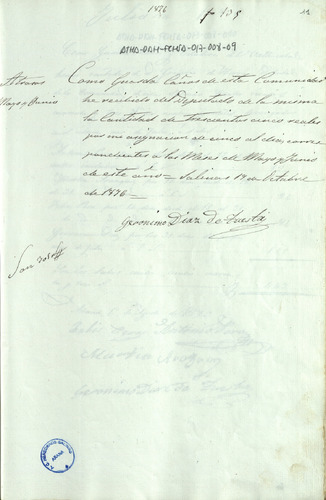 1876
ATHA-DAH-FEHSA-017-008-09
Como Guarda Caños de esta Comunidad
he recibido del Diputado de la misma
la Cantidad de trescientos cinco reales
por mi asignacion de cinco al dia, corres
pondientes a los Meses de Mayo y Junio
de este año = Salinas 14 de Octubre
de 1876 =
Mayo y Junio
Geronimo Diaz de
Son